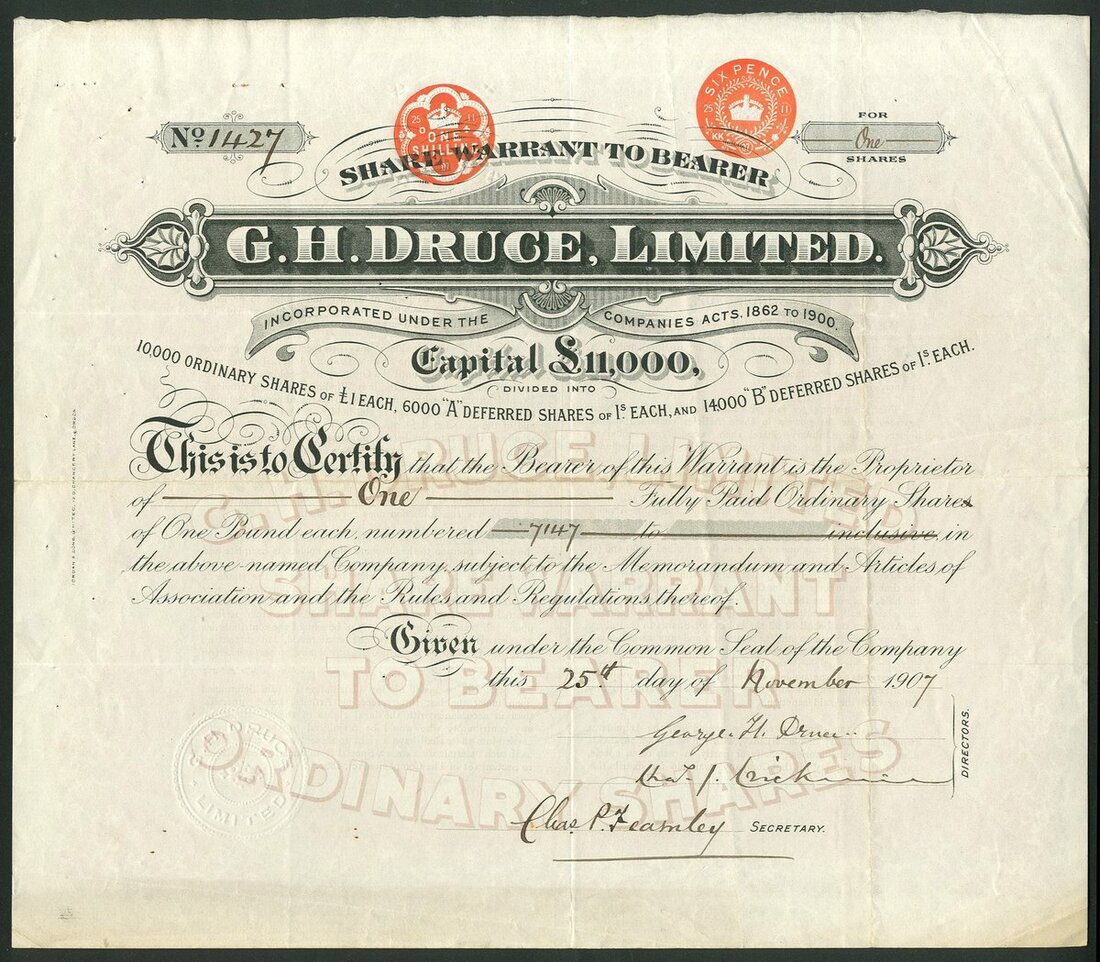 No 1427
25 11
ONE
SHILLING
07
SIX PENCE
25 11
KK
FOR
One
SHARES
SHARE WARRANT TO BEARER
G. H. DRUCE, LIMITED.
INCORPORATED UNDER THE COMPANIES ACTS, 1862 TO 1900.
Capital £11,000,
DIVIDED INTO
10,000 ORDINARY SHARES OF £1 EACH, 6000 "A" DEFERRED SHARES OF 1s EACH, AND 14,000 "B" DEFERRED SHARES OF 1s EACH.
This is to Certify that the Bearer of this Warrant is the Proprietor
of One Fully Paid Ordinary Shares
of One Pound each, numbered 7147 to inclusive, in
the above-named Company, subject to the Memorandum and Articles of
Association and the Rules and Regulations thereof.
G. H. DRUCE LIMITED
SHARE WARRANT
TO BEARER
ORDINARY SHARES
Given under the Common Seal of the Company
this 25th day of November 1907
George. H. Druce
DIRECTORS.
Chas. P. Fearnley SECRETARY.
DRUCE
LIMITED